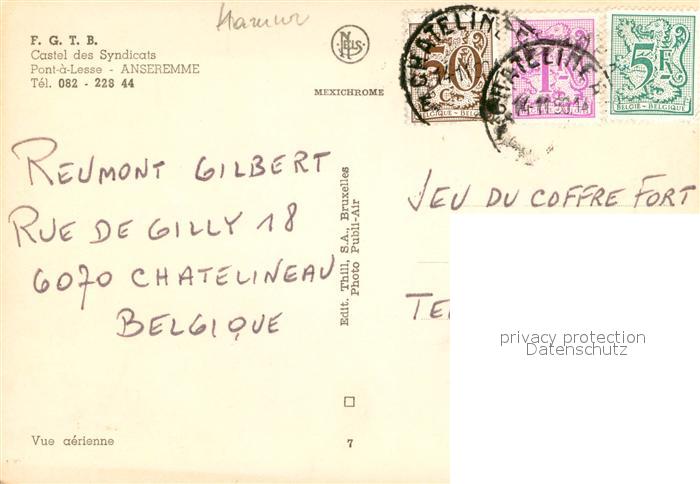 F. G. T. B.
Castel des Syndicats
Pont-à-Lesse - ANSEREMME
Tél. 082 - 228 44
NELS
MEXICHROME
CHATELINE
CHATELINE
50
Cs
BELGIQUE - BELGIË
1F
BELGIË - BELGIQUE
5F
BELGIË - BELGIQUE
REUMONT GILBERT
RUE DE GILLY 18
6070 CHATELINEAU
BELGIQUE
Edit. Thill, S.A., Bruxelles
Photo Publi-Air
JEU DU COFFRE FORT
TE
privacy protection
Datenschutz
Vue aérienne
7